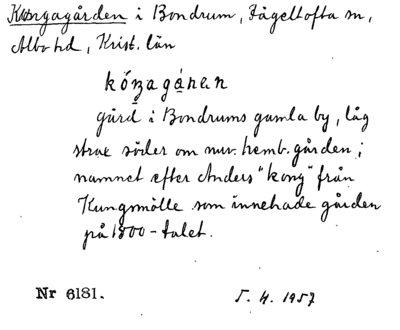 Kongagården i Bondrum, Fågeltofta sn,
Albo hd, Krist. län
kóŋagánen
gård i Bondrums gamla by, låg
strax söder om nuv. hemb. gården;
namnet efter Anders "kong" från
Kungsmölle som innehade gården
på 1800-talet.
Nr 6181. 5. 4. 1957